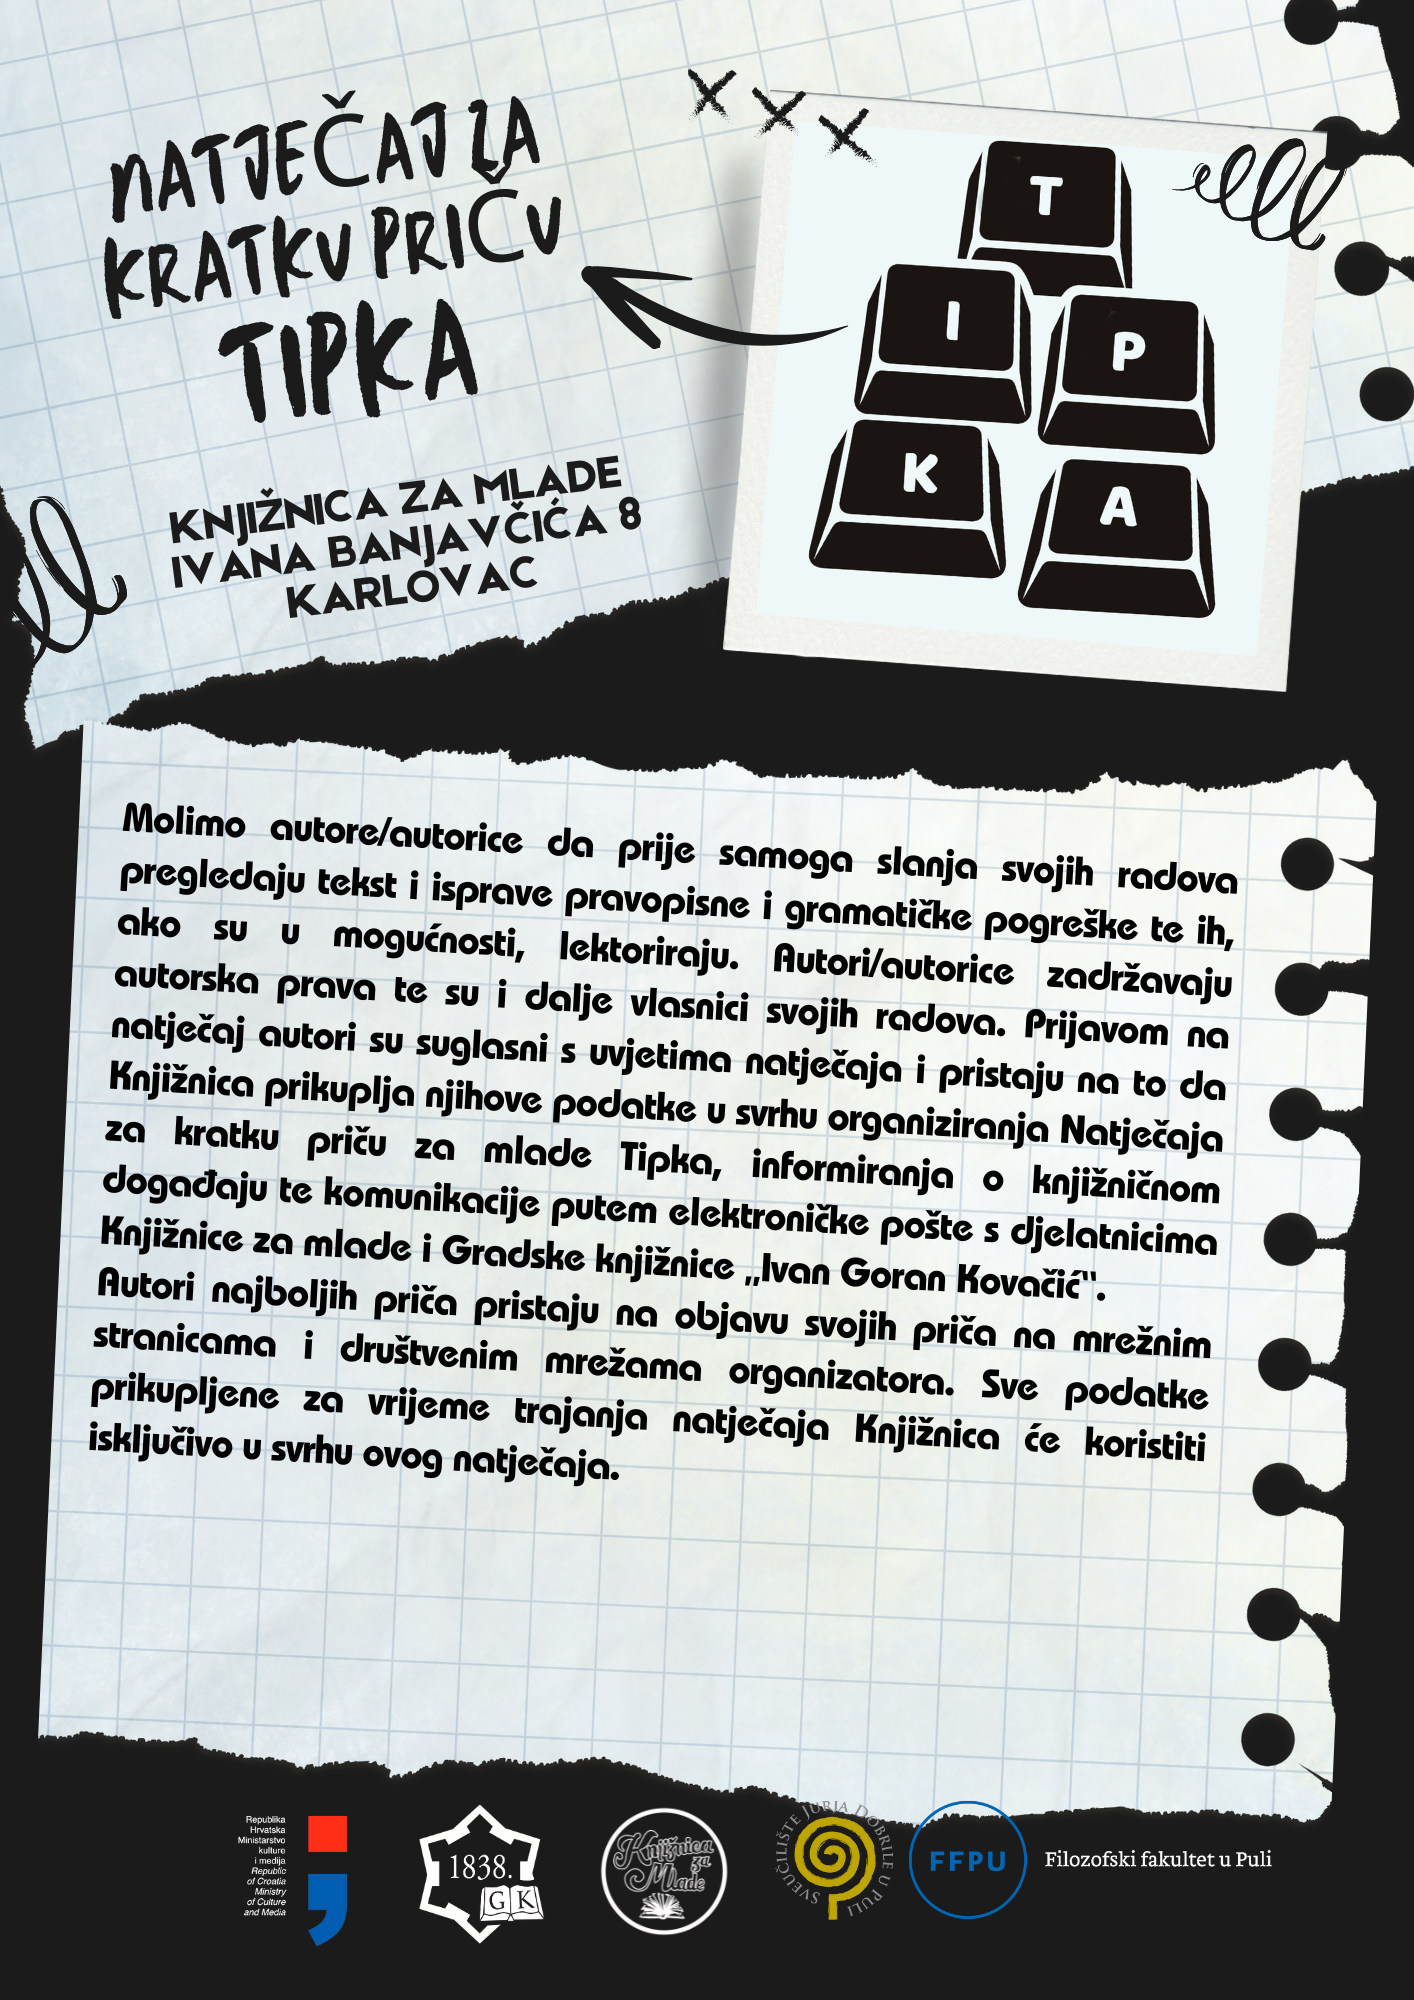 NATJEČAJ ZA
KRATKU PRIČU
TIPKA
T
I
P
K
A
KNJIŽNICA ZA MLADE
IVANA BANJAVČIĆA 8
KARLOVAC
Molimo autore/autorice da prije samoga slanja svojih radova
pregledaju tekst i isprave pravopisne i gramatičke pogreške te ih,
ako su u mogućnosti, lektoriraju. Autori/autorice zadržavaju
autorska prava te su i dalje vlasnici svojih radova. Prijavom na
natječaj autori su suglasni s uvjetima natječaja i pristaju na to da
Knjižnica prikuplja njihove podatke u svrhu organiziranja Natječaja
za kratku priču za mlade Tipka, informiranja o knjižničnom
događaju te komunikacije putem elektroničke pošte s djelatnicima
Knjižnice za mlade i Gradske knjižnice „Ivan Goran Kovačić“.
Autori najboljih priča pristaju na objavu svojih priča na mrežnim
stranicama i društvenim mrežama organizatora. Sve podatke
prikupljene za vrijeme trajanja natječaja Knjižnica će koristiti
isključivo u svrhu ovog natječaja.
Republika
Hrvatska
Ministarstvo
kulture
i medija
Republic
of Croatia
Ministry
of Culture
and Media
1838.
G K
Knjižnica
za
Mlade
SVEUČILIŠTE JURJA DOBRILE U PULI
FFPU
Filozofski fakultet u Puli